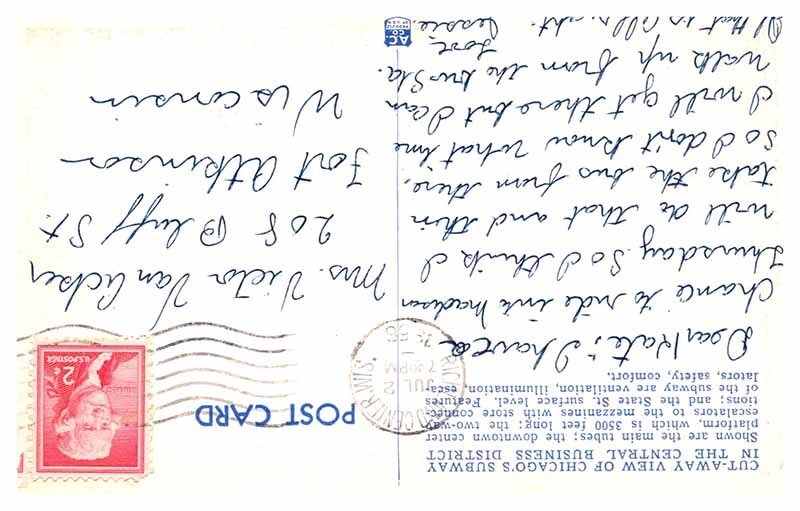 CUT-AWAY VIEW OF CHICAGO'S SUBWAY
IN THE CENTRAL BUSINESS DISTRICT
Shown are the main tubes; the downtown center
platform, which is 3500 feet long; the two-way
escalators to the mezzanines with store connec-
tions; and the State St. surface level. Features
of the subway are ventilation, illumination, esca-
lators, safety, comfort.
Dear Kate; I have a
chance to ride into Madison
Thursday. So I think I
will do that and then
take the bus from there,
so I don't know what time
I will get there but I can
walk up from the bus Sta.
Love,
Jessie.
that is all right.
POST CARD
CENTER WIS.
JUL 2
PM
56
U.S. POSTAGE
2¢
Mrs. Victor Van Acker
208 Bluff St.
Fort Atkinson
Wisconsin
A.C.
CO.